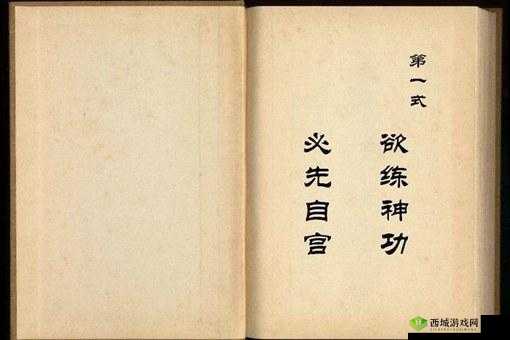 第一式
欲练神功
必先自宫
西城游戏网